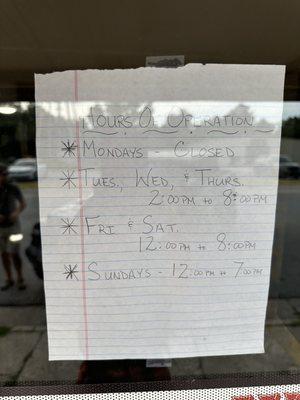 Hours Of Operation
* Mondays - Closed
* Tues., Wed, & Thurs.
2:00pm to 8:00pm
* Fri & Sat.
12:00pm to 8:00pm
* Sundays - 12:00pm to 7:00pm